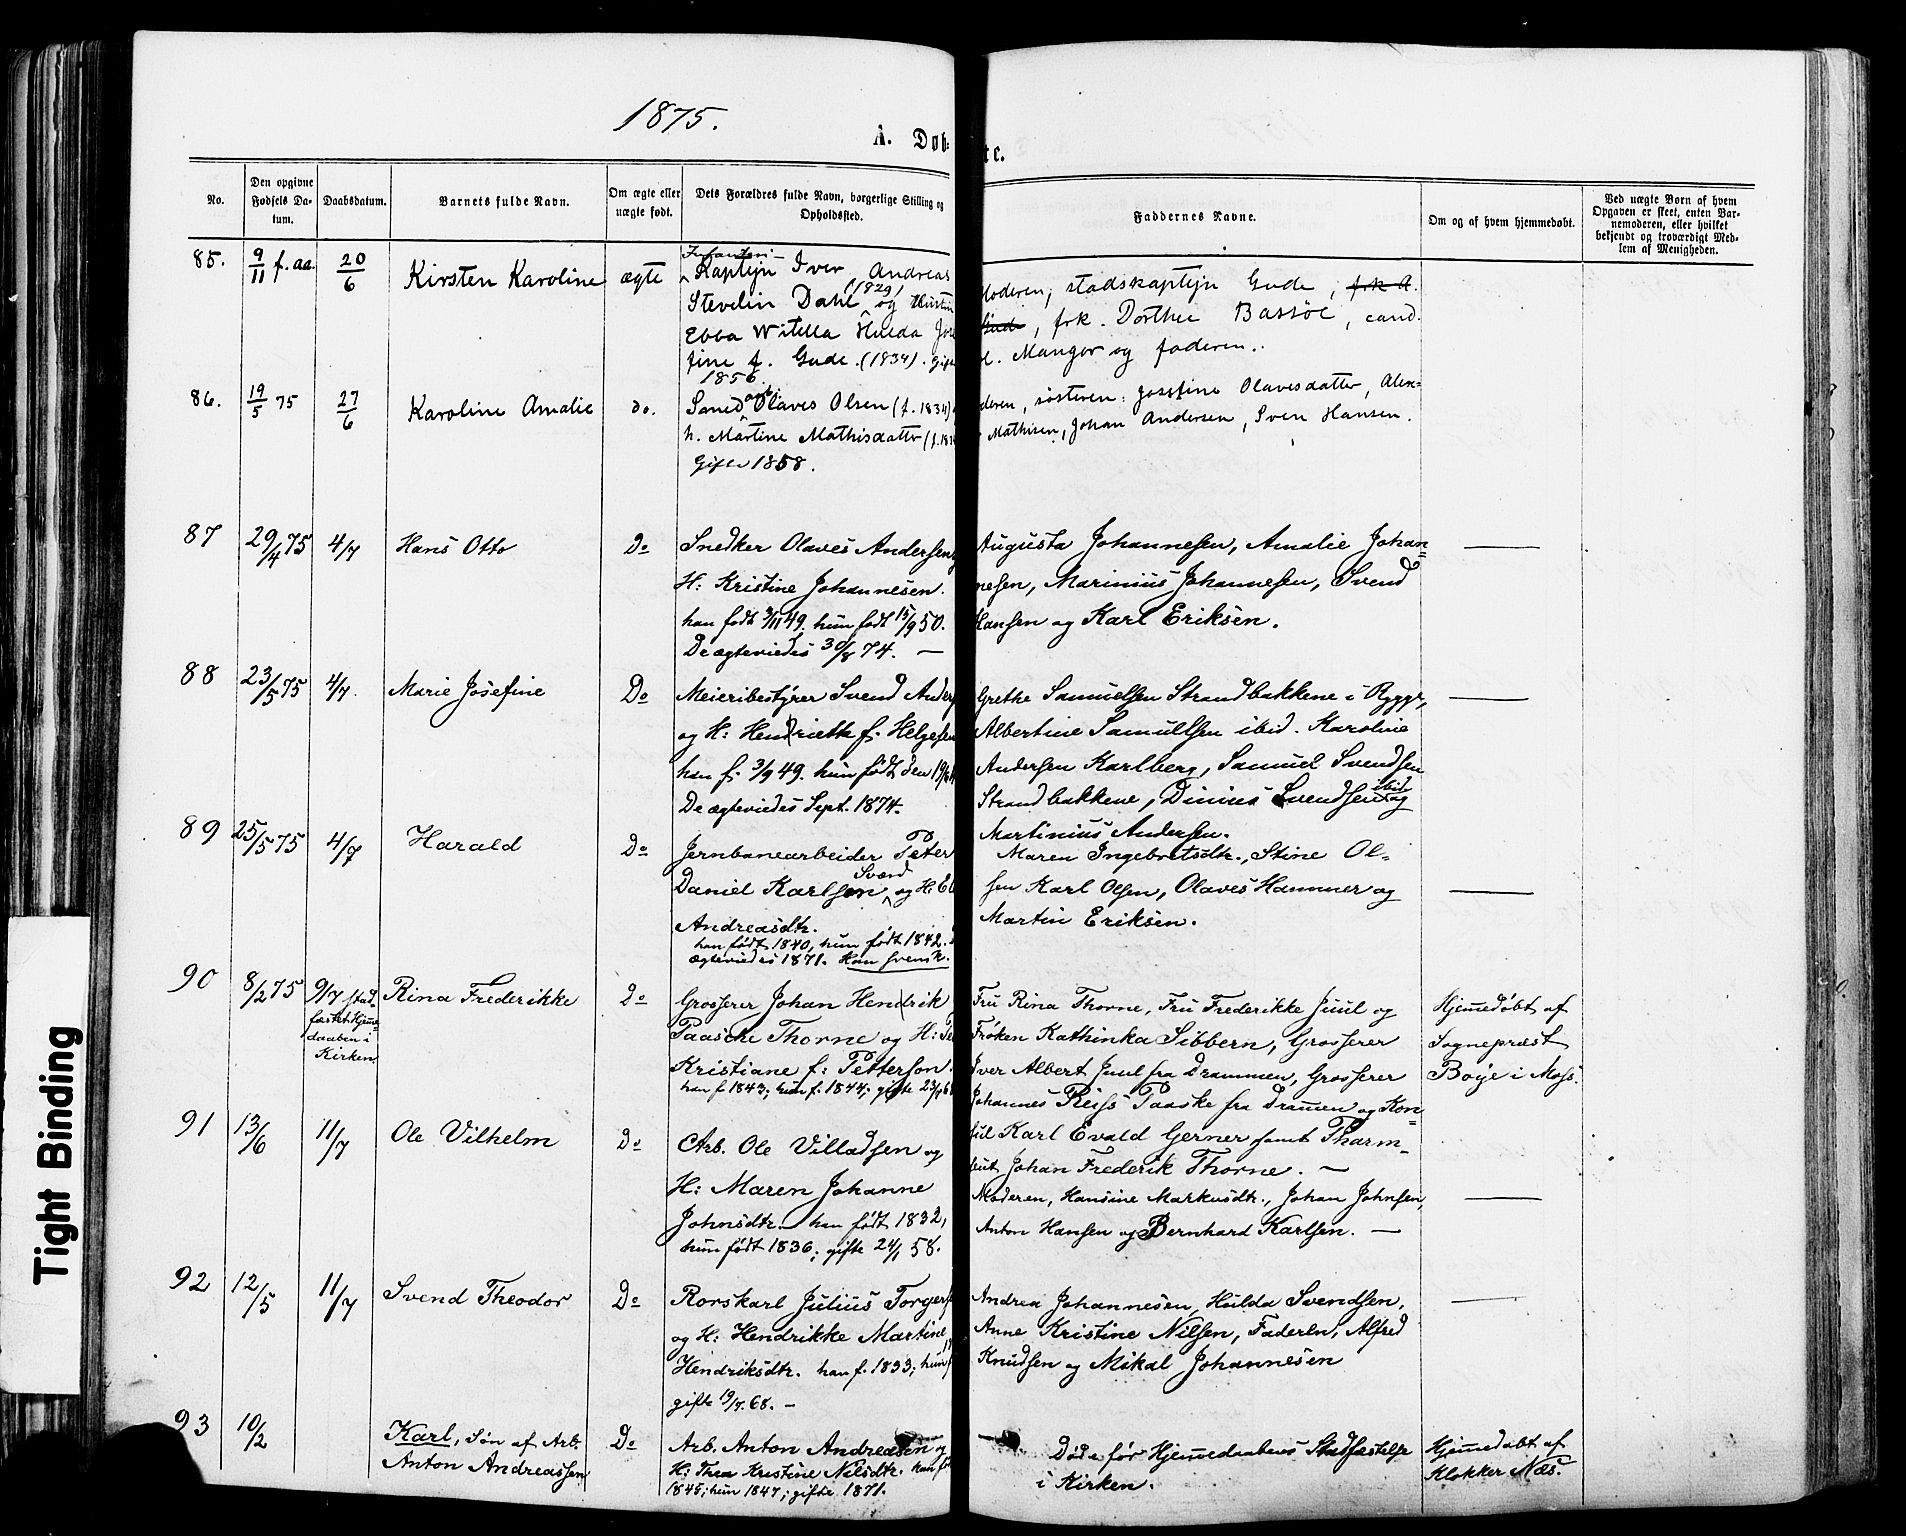 1875.
A. Døb-
te.
No.
Den opgivne Fødsels Da-tum.
Daabsdatum.
Barnets fulde Navn.
Om ægte eller uægte født.
Dets Forældres fulde Navn, borgerlige Stilling og Opholdssted.
Faddernes Navne.
Om og af hvem hjemmedøbt.
Ved uægte Børn af hvem Opgaven er skeet, enten Bar-nemoderen, eller hvilket bekjendt og troværdigt Med-lem af Menigheden.
85. 9/11 f. aa. 20/6 Kirsten Karoline ægte
Infanteri-
Kaptejn Iver Andreas
(1829)
Stevelin Dahl og Hustru
Ebba Witella Hulda Jose
fine f. Gude. (1834). gift
1856.
Moderen, stadskaptejn Gude, frk A.
Gude, frk. Dorthee Bassöe, cand.
Mangor og faderen..
86. 19/5 75 27/6 Karoline Amalie do.
Smed arb. Olaves Olsen (f. 1834)
h. Martine Mathisdatter (f. 18
Gifte 1858.
deren, søsteren: Josefine Olavesdatter, Alex-
Mathisen, Johan Andersen, Sven Hansen.
87 29/4 75 4/7 Hans Otto Do
Snedker Olaves Andersen
H: Kristine Johannesen.
han født 3/11 49. hun født 15/9 50.
De ægteviedes 30/8 74. —
Augusta Johannesen, Amalie Johan=
nesen, Marinius Johannesen, Svend
Hansen og Karl Eriksen.
88 23/5 75 4/7. Marie Josefine Do
Meieribestyrer Svend Anders
og H: Hendriette f. Helgesen
han f. 3/9 49. hun født den 19/6
De ægteviedes Sept. 1874.
Grethe Samuelsen Strandbakkene i Rygge,
Albertine Samuelsen ibid. Karoline
Andersen Karlberg, Samuel Svendsen
Strandbakkene, Dinius Svendsen ibid og
Martinius Andersen.
89 25/5 75 4/7 Harald Do
Jernbanearbeider Peter
Daniel Karlsen Sværd og H: El
Andreasdtr.
han født 1840, hun født 1842.
ægteviedes 1871. Han svensk.
Maren Ingebretsdtr., Stine Ol-
sen Karl Olsen, Olaves Hammer og
Martin Eriksen.
90 8/2 75 9/7 stad-
fæstet Hjme-
daaben i
Kirken
Rina Frederikke Do
Grosserer Johan Hendrik
Paasche Thorne og H:
Kristiane f: Petterson.
han f 1843; hun f. 1844; gifte 23/9 6
Fru Rina Thorne, Fru Frederikke Juul og
Frøken Kathinka Sibbern, Grosserer
Iver Albert Juul fra Drammen, Grosserer
Johannes Reiss Paaske fra Dramen og Kon=
sul Karl Evald Gerner samt Pharm-
ceut Johan Frederik Thorne. —
Hjemedøbt af
Sognepræst
Boye i Moss.
91 13/6 11/7 Ole Vilhelm Do
Arb. Ole Villadsen og
H: Maren Johanne
Johnsdtr. han født 1832,
hun født 1836; gifte 24/1 58.
Moderen, Hansine Markusdtr., Johan Johnsen,
Anton Hansen og Bernhard Karlsen. —
92 12/5 11/7 Svend Theodor Do
Rorskarl Julius Torgers
og H: Hendrikke Martine
Hendriksdtr. han f. 1833; hun f
gifte 19/7. 68. —
Andrea Johannesen, Hulda Svendsen,
Anne Kristine Nilsen, Faderen, Alfred
Knudsen og Mikal Johannesen
93 10/2 Karl, Søn af Arb.
Anton Andreassen
Do
Arb. Anton Andreasen og
H: Thea Kristine Nilsdtr. han fø
1845; hun 1847; gifte 1871.
Døde før Hjemmedaabens Stadfæstelse
i Kirken.
Hjemedøbt af
Klokker Næs.
Tight Binding